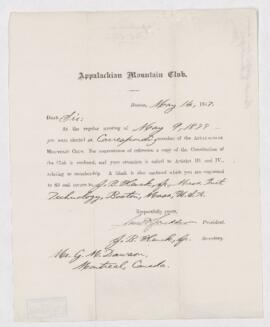 Appalachian Mountain Club.
Boston, May 16, 187
Dear Sir:
At the regular meeting of May 9, 1877
you were elected a Corresponding member of the APPALACHIAN
MOUNTAIN CLUB. For convenience of reference a copy of the Constitution of
the Club is enclosed, and your attention is called to Articles III and IV,
relating to membership. A blank is also enclosed which you are requested
to fill and return to J. B. Henck, Jr., Mass. Inst.
Technology, Boston, Mass., U.S.A.
Respectfully yours,
President.
J. B. Henck, Jr.
Secretary.
Mr. G. M. Dawson,
Montreal, Canada.